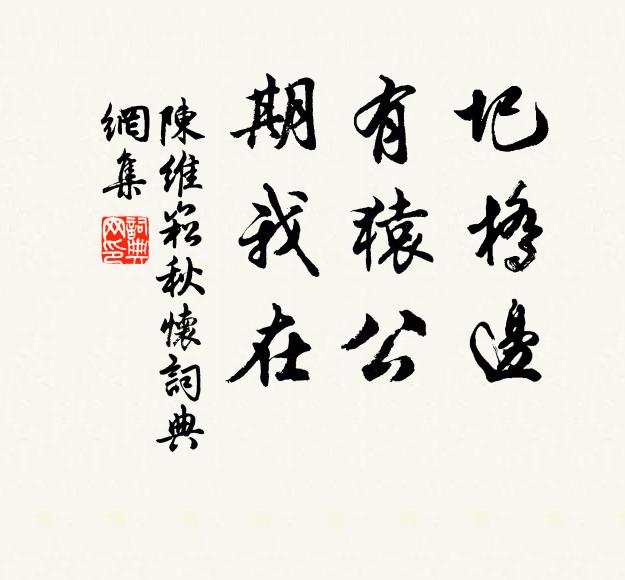 圯橋邊
有猿公
期我在
陳維崧秋懷詞典
網集
詞典
网印